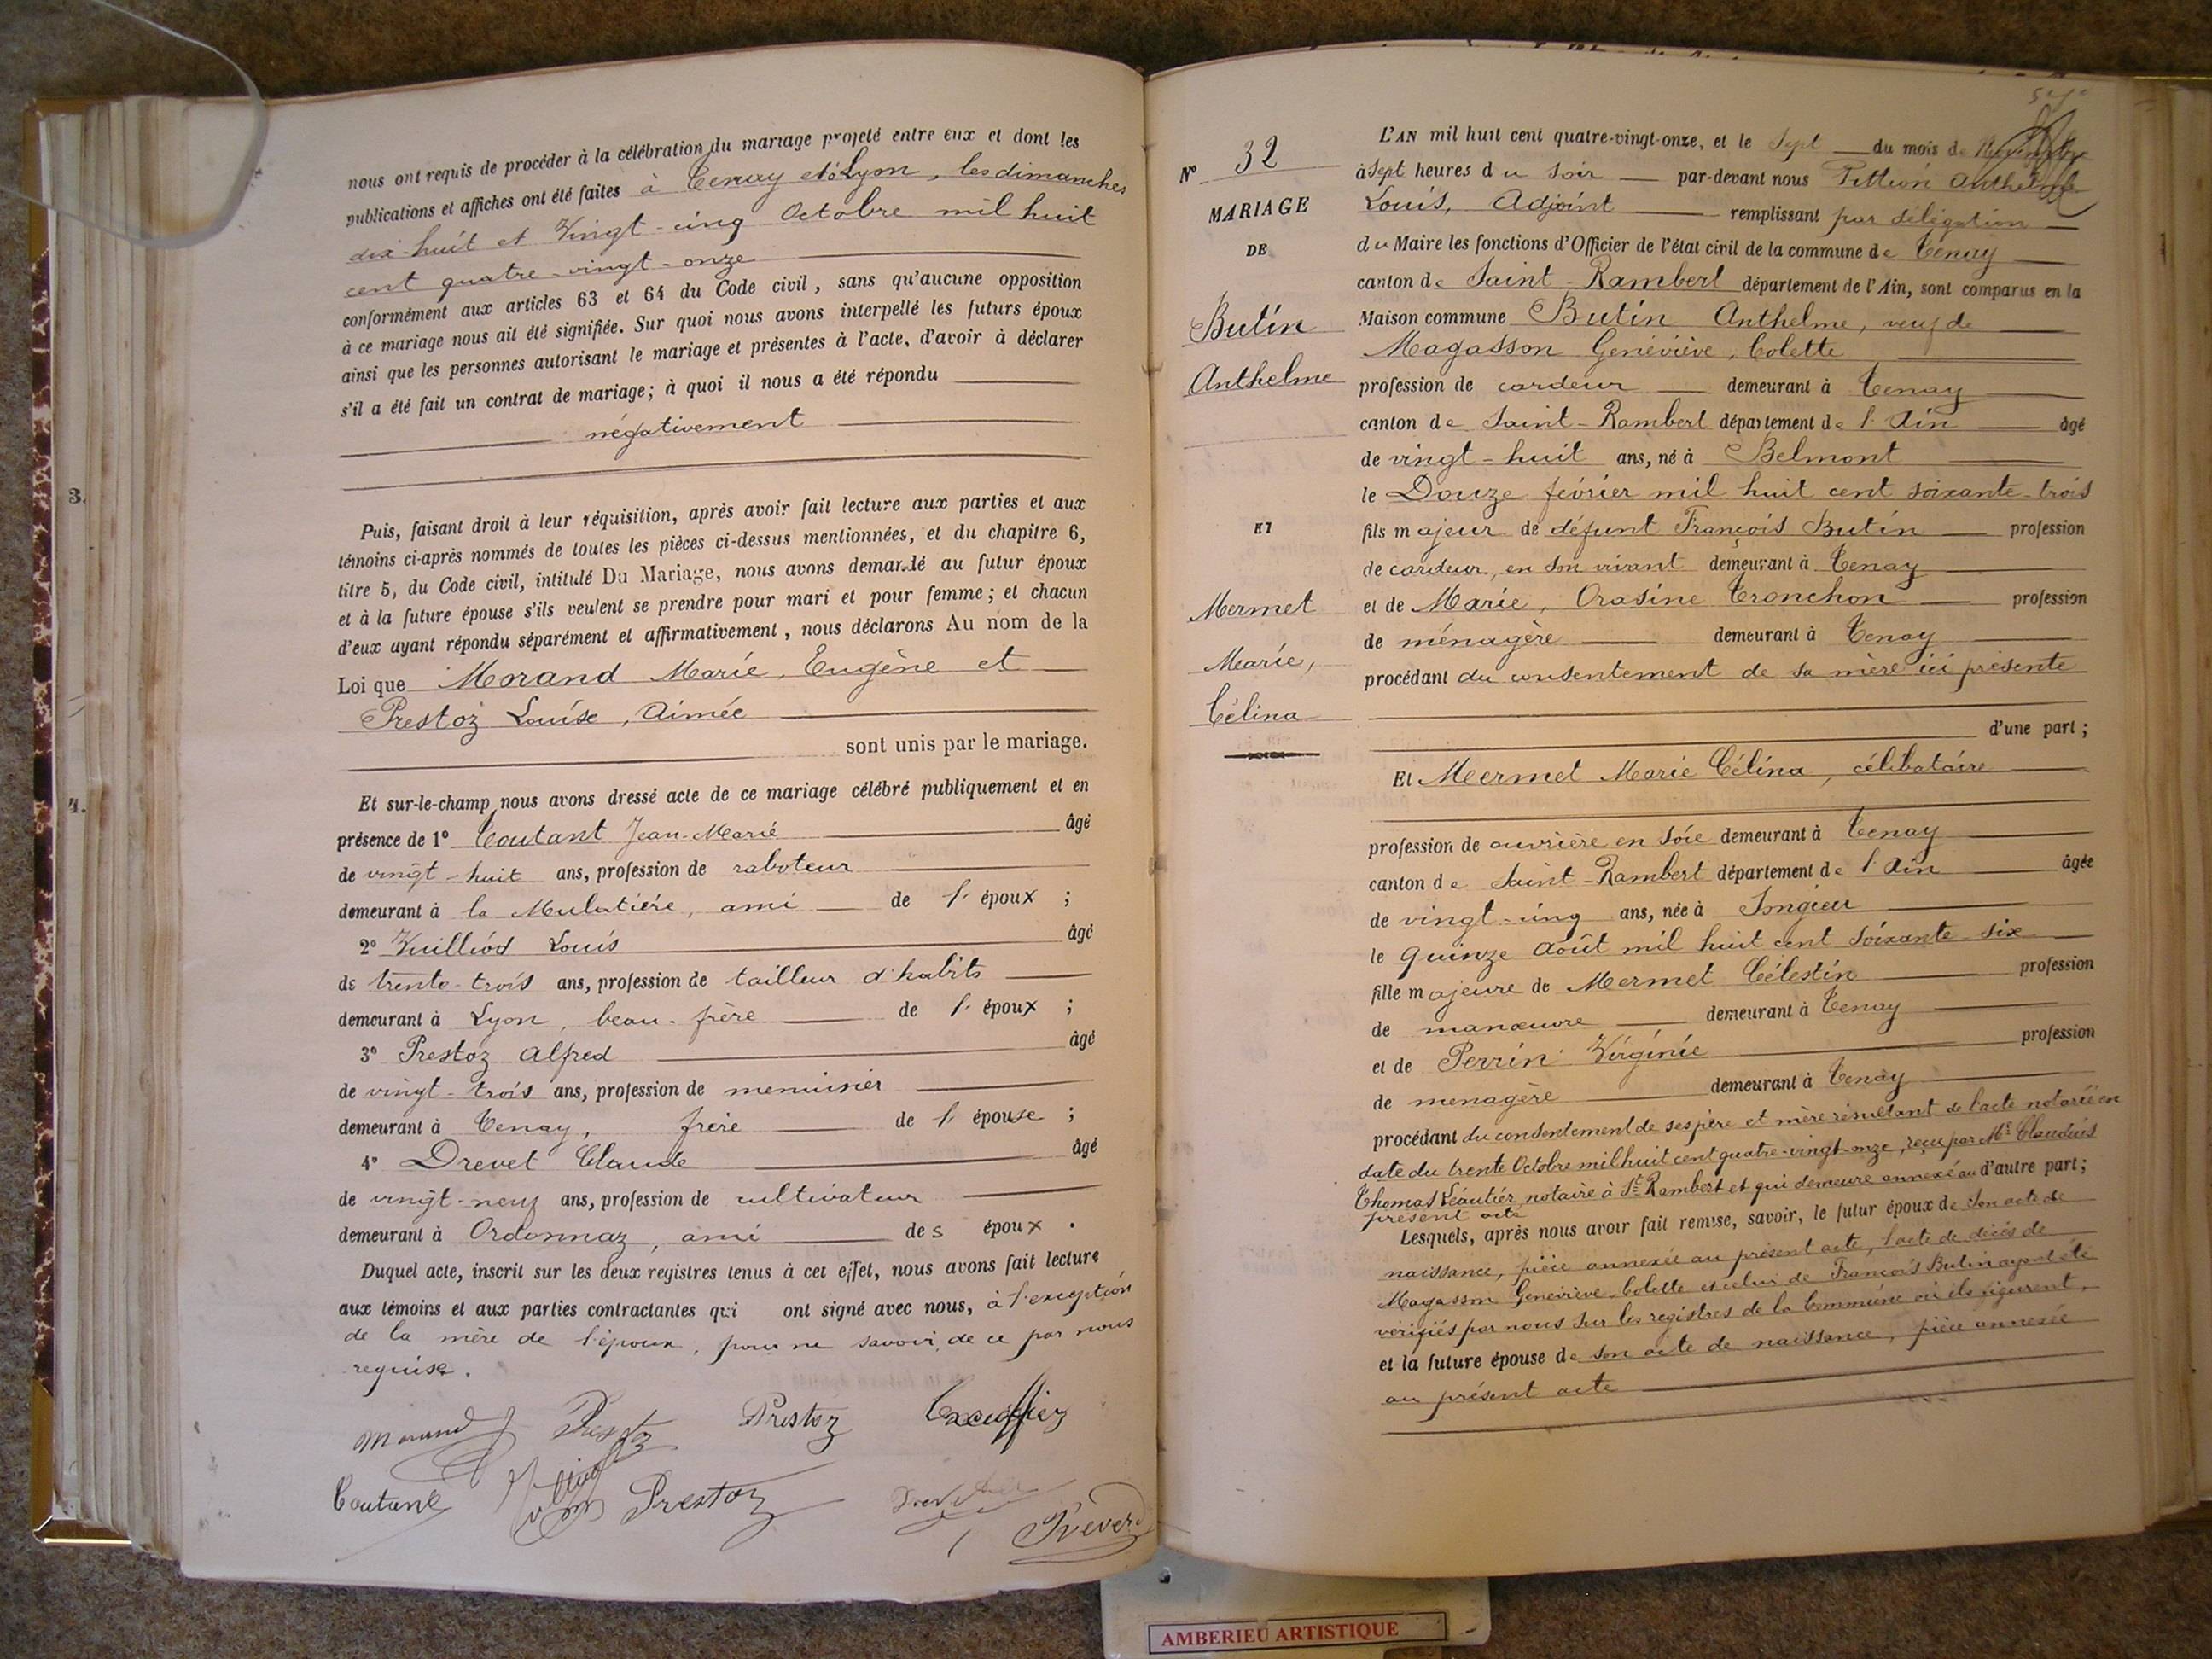 nous ont requis de procéder à la célébration du mariage projeté entre eux et dont les
publications et affiches ont été faites à Tenay et à Lyon, les dimanches
dix-huit et Vingt-cinq Octobre mil huit
cent quatre-vingt-onze
conformément aux articles 63 et 64 du Code civil, sans qu'aucune opposition
à ce mariage nous ait été signifiée. Sur quoi nous avons interpellé les futurs époux
ainsi que les personnes autorisant le mariage et présentes à l'acte, d'avoir à déclarer
s'il a été fait un contrat de mariage; à quoi il nous a été répondu
négativement
Puis, faisant droit à leur réquisition, après avoir fait lecture aux parties et aux
témoins ci-après nommés de toutes les pièces ci-dessus mentionnées, et du chapitre 6,
titre 5, du Code civil, intitulé Du Mariage, nous avons demandé au futur époux
et à la future épouse s'ils veulent se prendre pour mari et pour femme; et chacun
d'eux ayant répondu séparément et affirmativement, nous déclarons Au nom de la
Loi que Morand Marie, Eugène et
Prestoz Louise, Aimée
sont unis par le mariage.
Et sur-le-champ nous avons dressé acte de ce mariage célébré publiquement et en
présence de 1° Coutant Jean-Marie âgé
de vingt-huit ans, profession de raboteur
demeurant à la Mulatière, ami de l'époux ;
2° Vuilliod Louis âgé
de trente-trois ans, profession de tailleur d'habits
demeurant à Lyon, beau-frère de l'époux ;
3° Prestoz Alfred âgé
de vingt-trois ans, profession de menuisier
demeurant à Tenay, frère de l'épouse ;
4° Drevet Claude âgé
de vingt-neuf ans, profession de cultivateur
demeurant à Ordonnaz, ami des époux .
Duquel acte, inscrit sur les deux registres tenus à cet effet, nous avons fait lecture
aux témoins et aux parties contractantes qui ont signé avec nous, à l'exception
de la mère de l'époux, pour ne savoir, de ce par nous
requise.
Morand Prestoz Prestoz
Coutant Prestoz
3.
4.
N° 32
MARIAGE
DE
Butin
Anthelme
ET
Mermet
Marie,
Célina
L'AN mil huit cent quatre-vingt-onze, et le Sept du mois de Novembre
à Sept heures du soir par-devant nous Pittion Anthelme
Louis, Adjoint remplissant par délégation
du Maire les fonctions d'Officier de l'état civil de la commune de Tenay
canton de Saint-Rambert département de l'Ain, sont comparus en la
Maison commune Butin Anthelme, veuf de
Magasson Geneviève, Colette
profession de cardeur demeurant à Tenay
canton de Saint-Rambert département de l'Ain âgé
de vingt-huit ans, né à Belmont
le Douze février mil huit cent soixante-trois
fils majeur de défunt François Butin profession
de cardeur, en son vivant demeurant à Tenay
et de Marie, Orasine Tronchon profession
de ménagère demeurant à Tenay
procédant du consentement de sa mère ici présente
d'une part ;
Et Mermet Marie Célina, célibataire
profession de ouvrière en soie demeurant à Tenay
canton de Saint-Rambert département de l'Ain âgée
de vingt-cinq ans, née à Songieu
le quinze Août mil huit cent soixante-six
fille majeure de Mermet Célestin profession
de manœuvre demeurant à Tenay
et de Perrin Virginie profession
de ménagère demeurant à Tenay
procédant du consentement de ses père et mère résultant de l'acte notarié en
date du trente Octobre mil huit cent quatre-vingt-onze, reçu par Me Claudius
Thomas Léautier, notaire à St Rambert et qui demeure annexé au d'autre part ;
présent acte
Lesquels, après nous avoir fait remise, savoir, le futur époux de son acte de
naissance, pièce annexée au présent acte, l'acte de décès de
Magasson Geneviève-Colette et celui de François Butin ayant été
vérifiés par nous sur les registres de la Commune où ils figurent,
et la future épouse de son acte de naissance, pièce annexée
au présent acte
AMBERIEU ARTISTIQUE